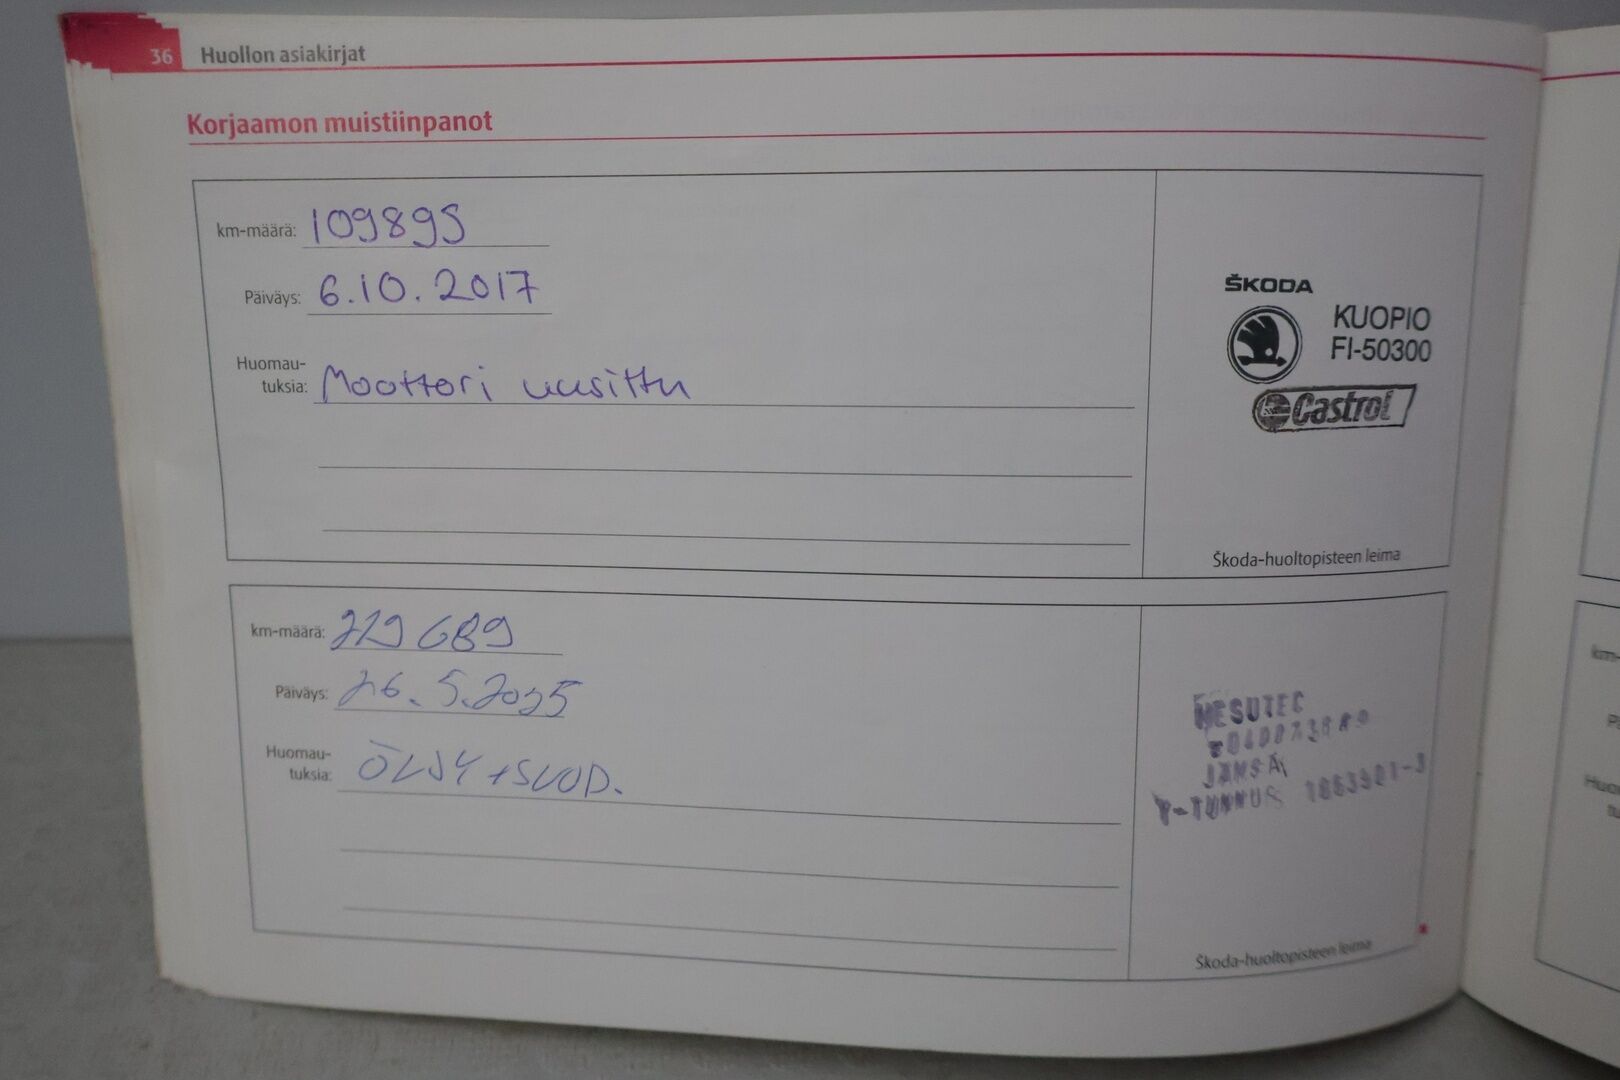 36 Huollon asiakirjat
Korjaamon muistiinpanot
km-määrä: 109895
Päiväys: 6.10.2017
Huomau-
tuksia: Moottori uusittu
ŠKODA
KUOPIO
FI-50300
Castrol
Škoda-huoltopisteen leima
km-määrä: 229689
Päiväys: 26.5.2025
Huomau-
tuksia: ÖLJY + SUOD.
JÄMSÄ
Y-TUNNUS
Škoda-huoltopisteen leima
km-